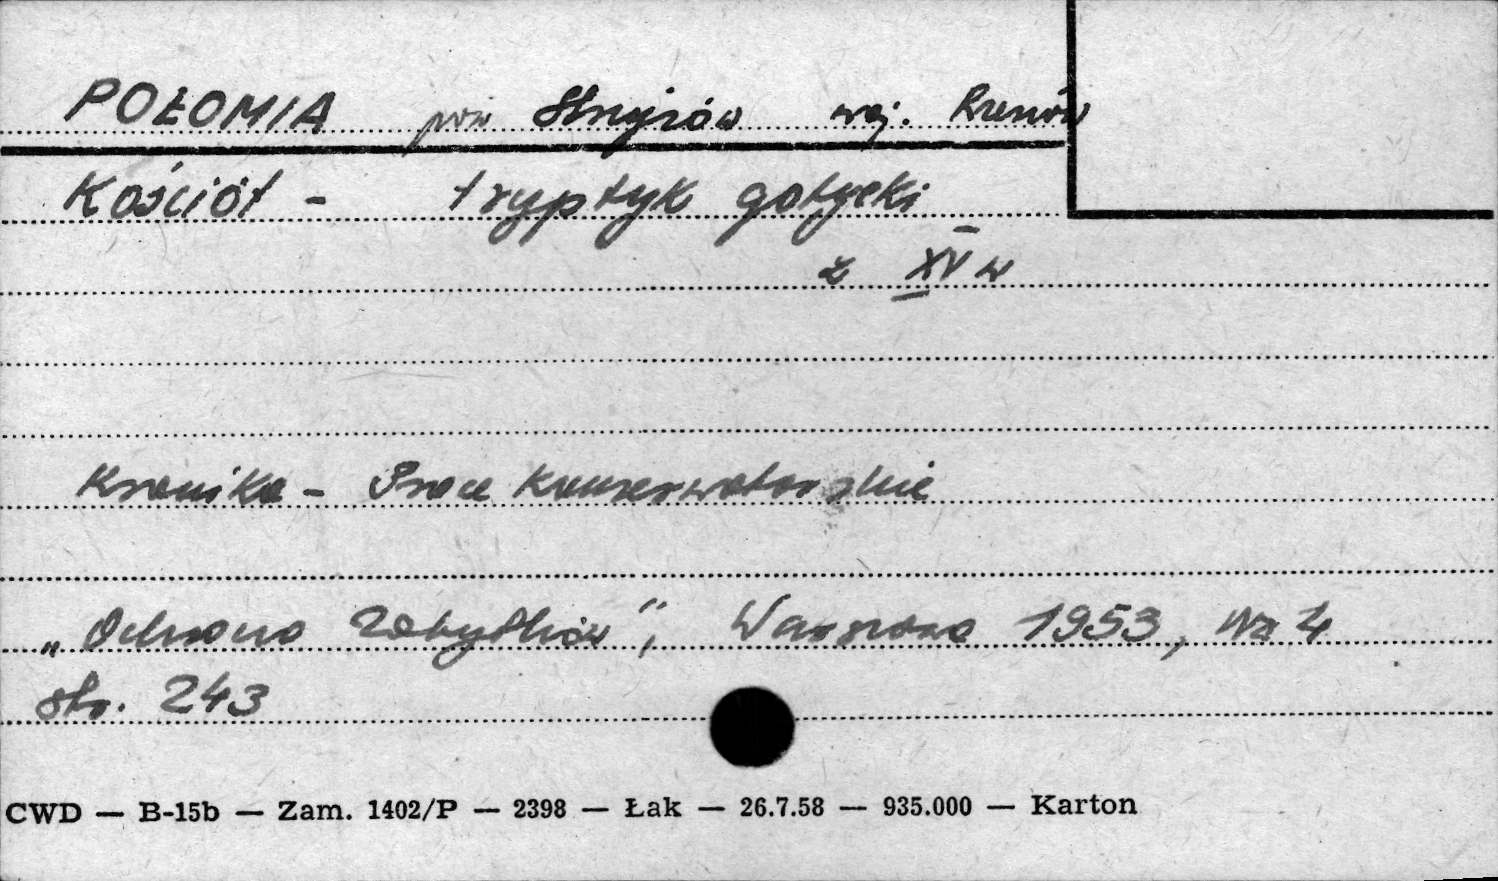 POŁOMIA pow Strzyżów woj. Rzeszów
Kościół - tryptyk gotycki
z XV w
Kronika - Prace konserwatorskie
„Ochrona Zabytków", Warszawa 1953, Nr 4
str. 243
CWD — B-15b — Zam. 1402/P — 2398 — Łak — 26.7.58 — 935.000 — Karton